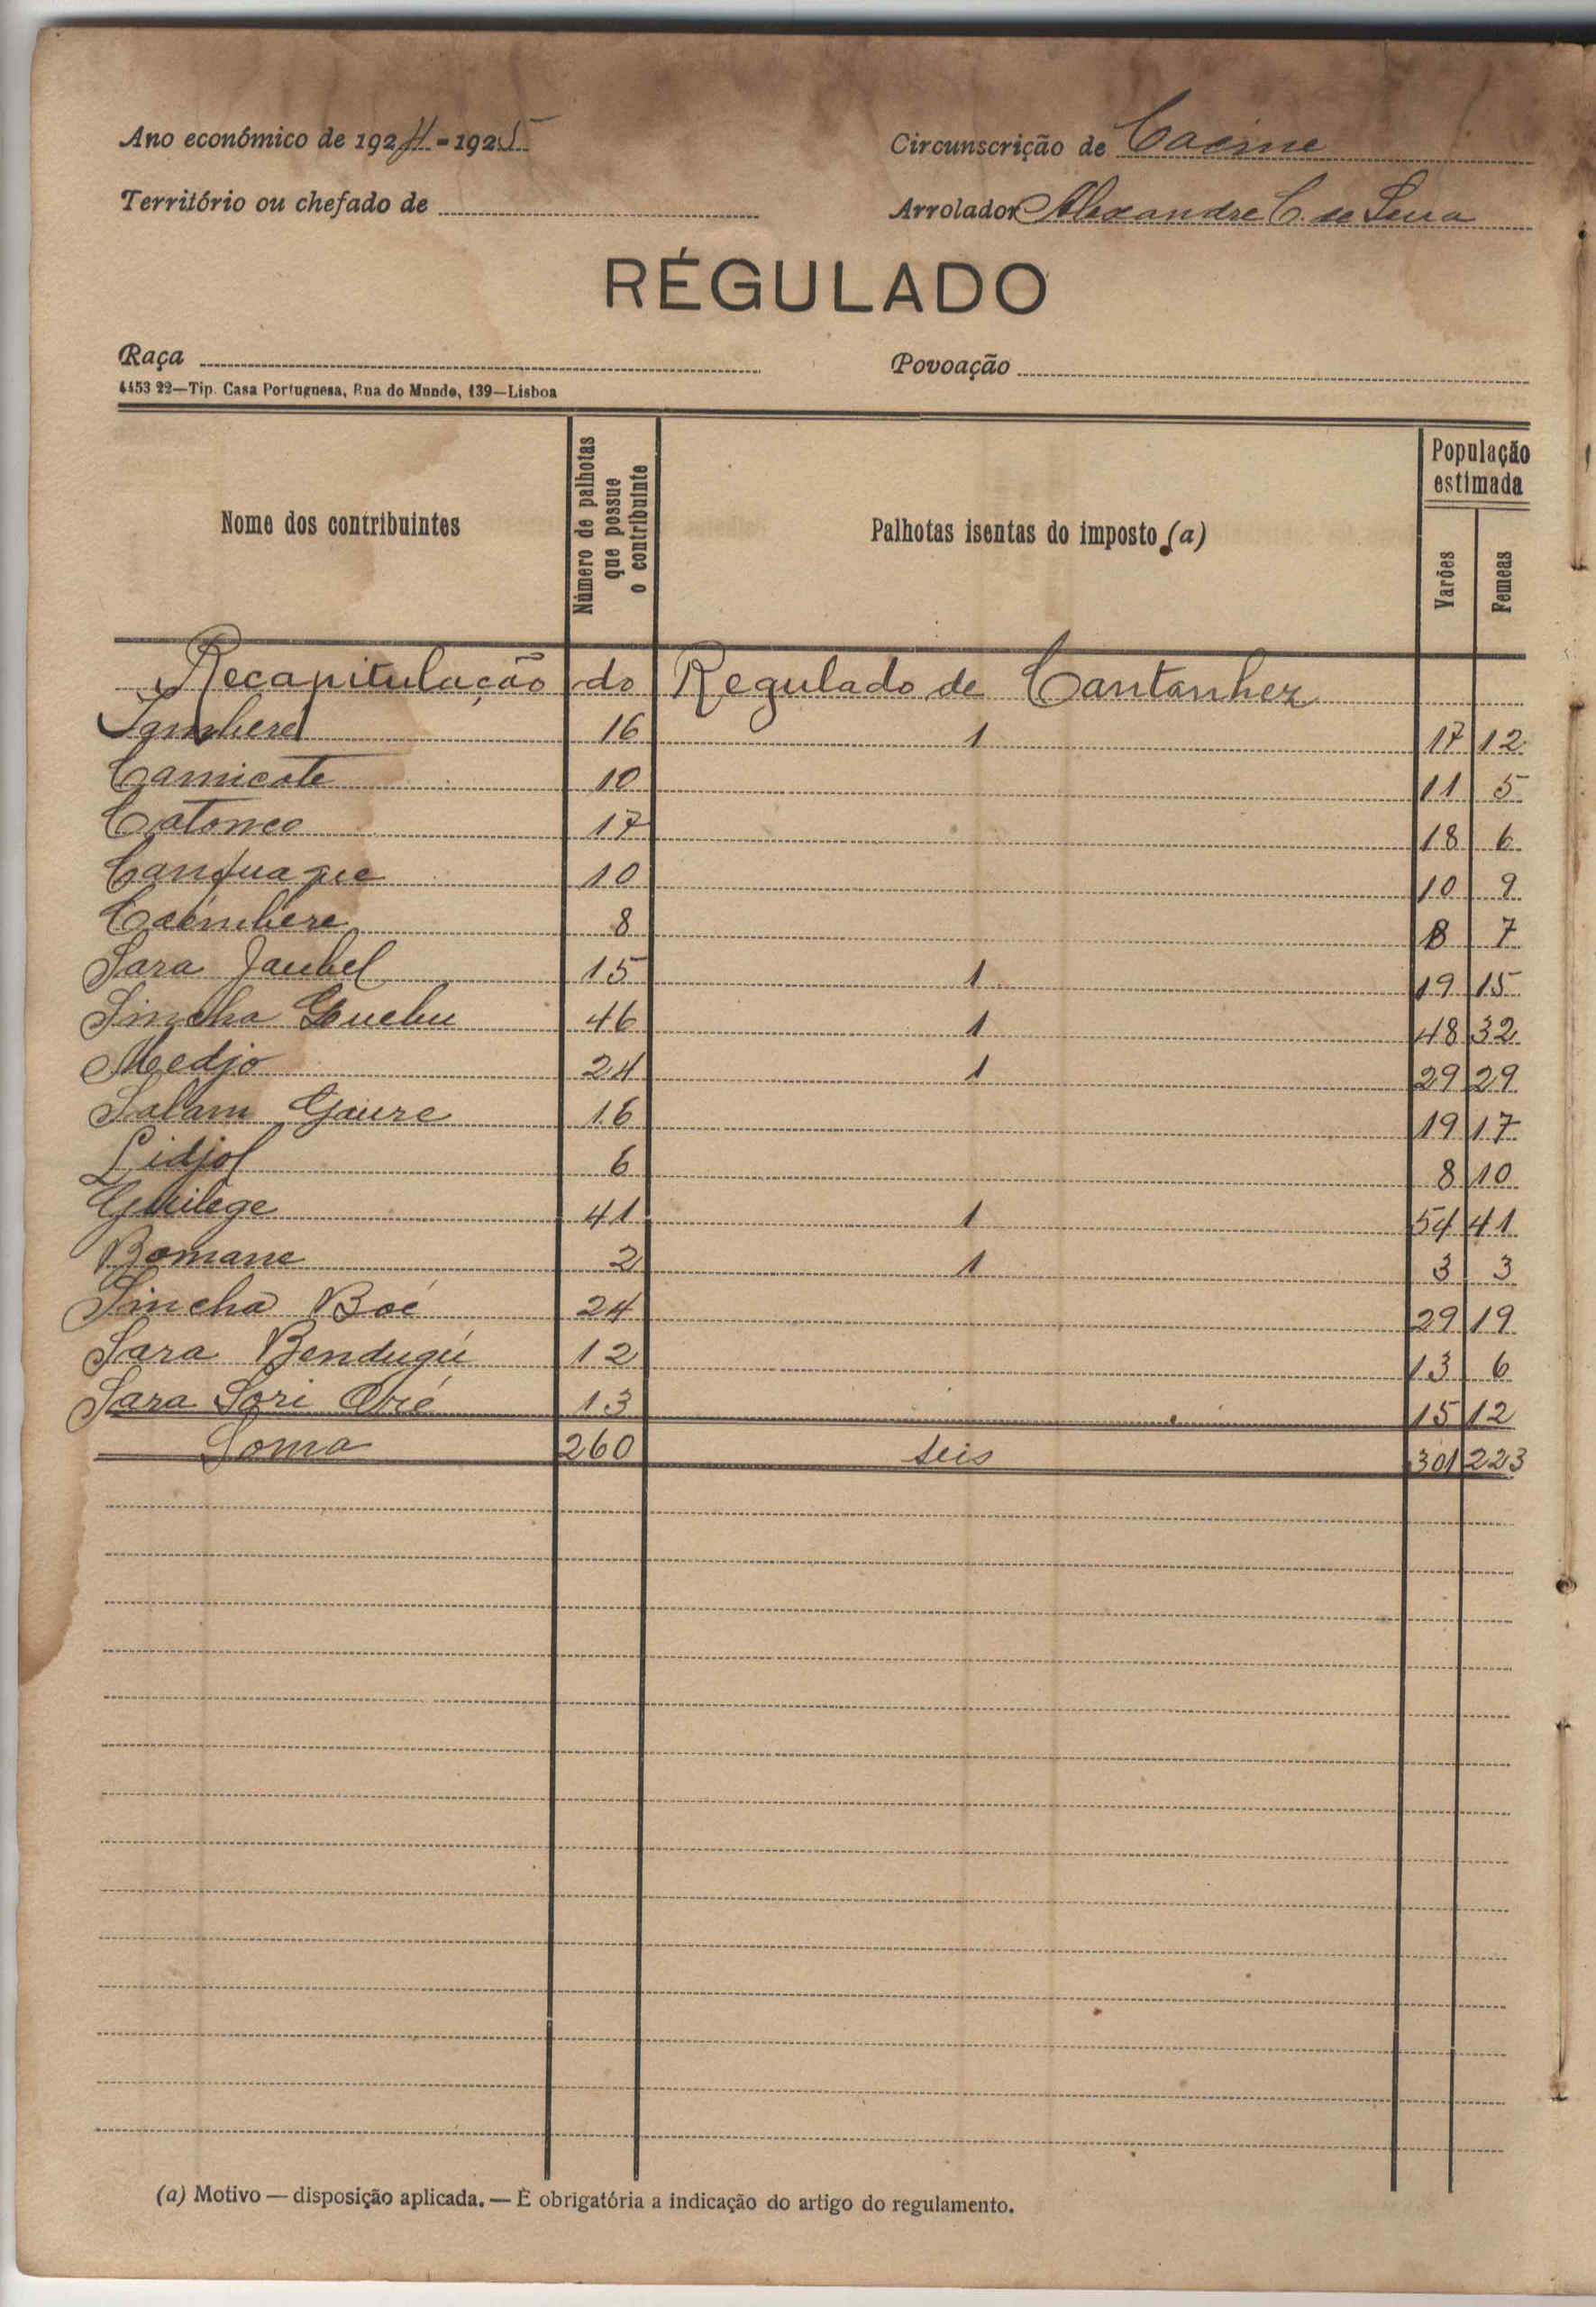 Ano económico de 1924-1925 Circunscrição de Cacine
Território ou chefado de Arrolador Alexandre C. de Sena
RÉGULADO
Raça Povoação
4453 22—Tip. Casa Portuguesa, Rua do Mundo, 139—Lisboa
Nome dos contribuintes Número de palhotas que possue o contribuinte Palhotas isentas do imposto (a) População estimada Varões Femeas
Recapitulação do Regulado de Cantanhez
16 1 17 12
Camicote 10 11 5
Catoneo 17 18 6
10 10 9
Caémbere 8 8 7
Sara Jaubel 15 1 19 15
Sincha 46 1 48 32
Medjo 24 1 29 29
Salam Gaure 16 19 17
Lidjol 6 8 10
Guilege 41 1 54 41
Bomane 2 1 3 3
Sincha Boé 24 29 19
Sara Bendugú 12 13 6
Sara Sori 13 15 12
Soma 260 seis 301 223
(a) Motivo — disposição aplicada. — É obrigatória a indicação do artigo do regulamento.